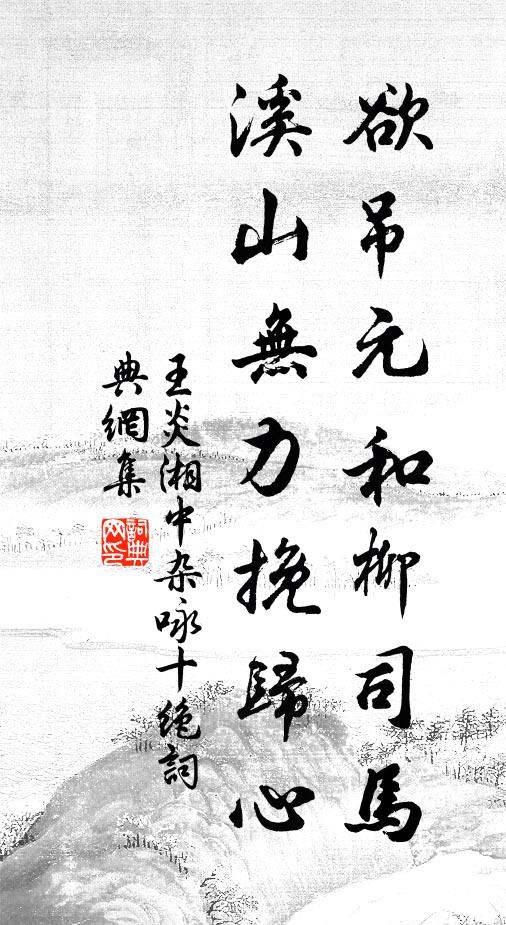 欲吊元和柳司馬
溪山無力挽歸心
王炎湘中杂咏十绝詞
典網集
詞典网印